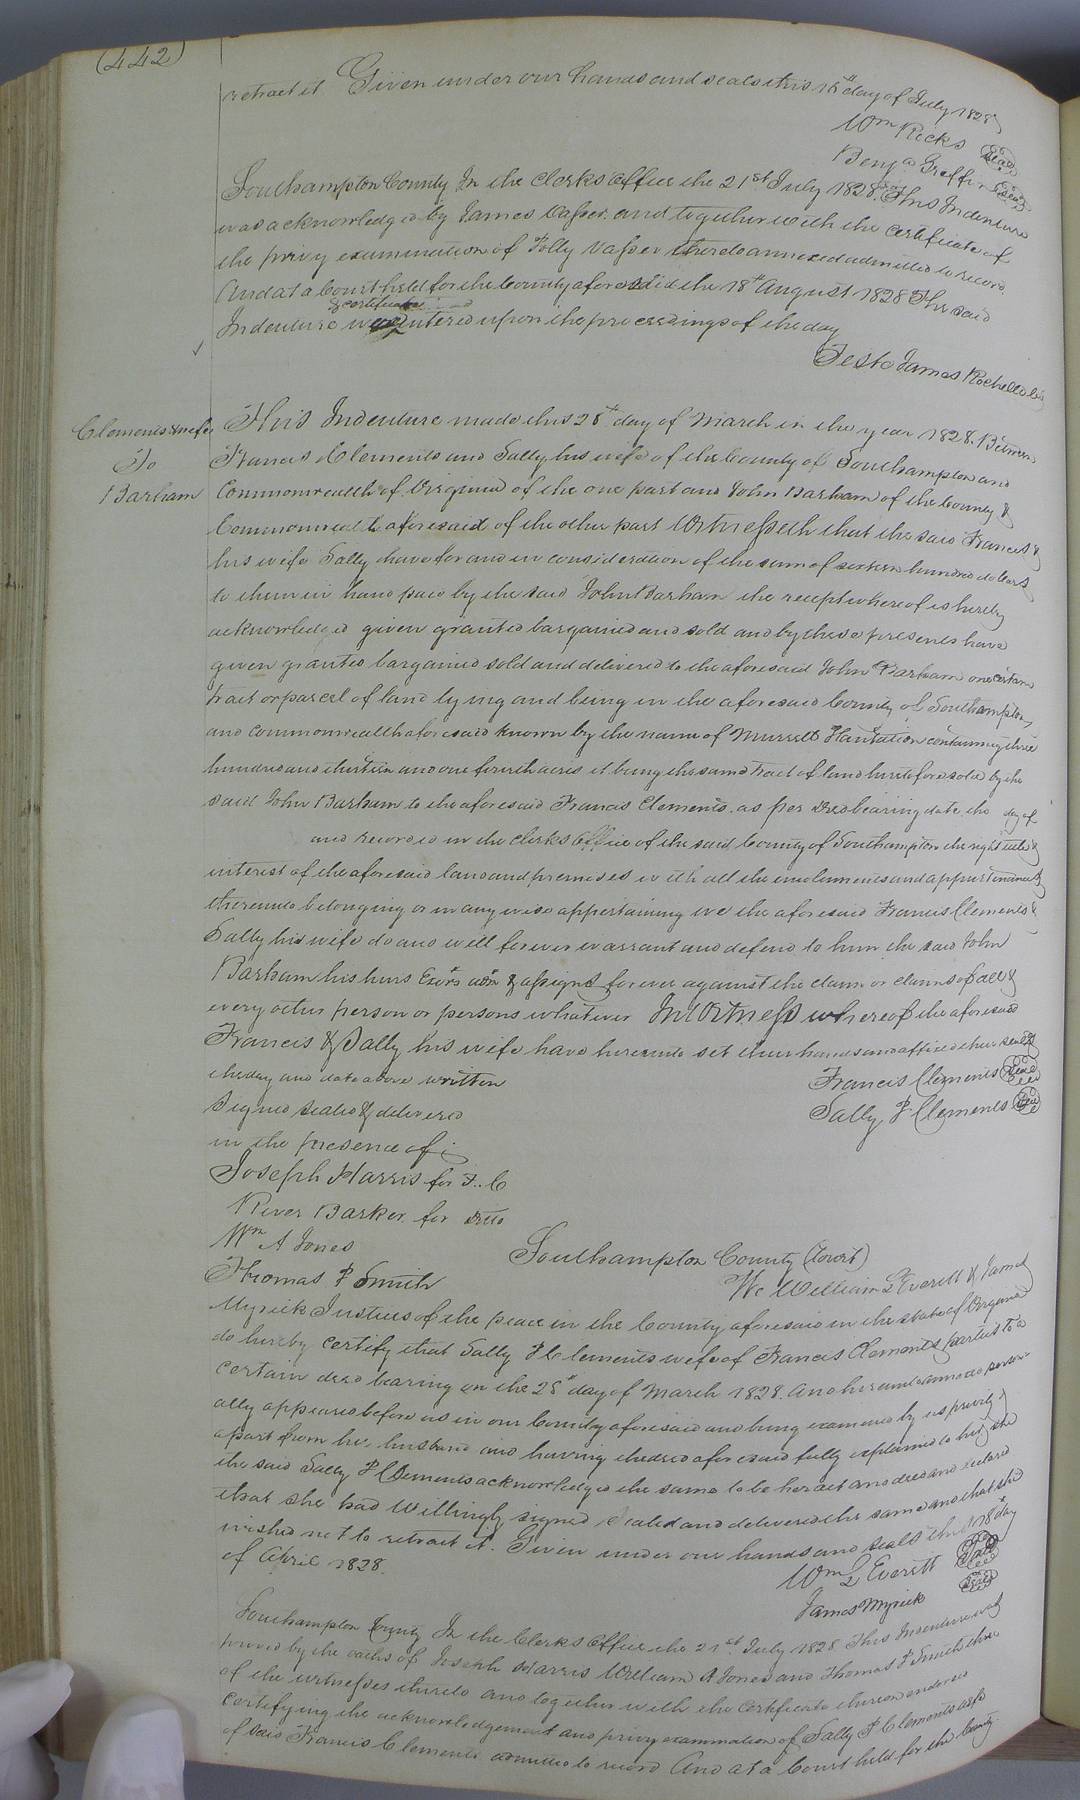 (442)
retract it Given under our hands and seals this 15th day of July 1828
Wm Ricks Seal
Benja Griffin Seal
Southampton County In the Clerks Office the 21st July 1828. This Indenture
was acknowledged by James Vasser and together with the Certificate of
the privy examination of Polly Vasser thereto annexed admitted to record.
And at a Court held for the County aforesaid the 18th August 1828 The said
& certificate
Indenture entered upon the proceedings of the day
Teste James Rochelle
Clements & wife
To
Barham
This Indenture made this 28th day of March in the year 1828. Between
Francis Clements and Sally his wife of the County of Southampton and
Commonwealth of Virginia of the one part and John Barham of the County &
Commonwealth aforesaid of the other part Witnesseth that the said Francis &
his wife Sally have for and in consideration of the sum of sixteen hundred dollars
to them in hand paid by the said John Barham the receipt whereof is hereby
acknowledged given granted bargained and sold and by these presents have
given granted bargained sold and delivered to the aforesaid John Barham one certain
tract or parcel of land lying and being in the aforesaid County of Southampton
and Commonwealth aforesaid known by the name of Plantation containing three
hundred and thirteen and one fourth acres it being the same tract of land heretofore sold by the
said John Barham to the aforesaid Francis Clements. as per Deed bearing date the day of
and recorded in the Clerks Office of the said County of Southampton the right title &
interest of the aforesaid land and premises with all the emoluments and appurtenances
thereunto belonging or in any wise appertaining we the aforesaid Francis Clements &
Sally his wife do and will forever warrant and defend to him the said John
Barham his heirs Exors adm & assigns forever against the claim or claims of all &
every other person or persons whatever In Witness whereof the aforesaid
Francis & Sally his wife have hereunto set their hands and affixed their seals
the day and date above written Francis Clements Seal
Signed sealed & delivered Sally P Clements Seal
in the presence of
Joseph Harris for F. C
River Barker for ditto
Wm A Jones
Thomas P Smith
Southampton County (towit)
We William L Everitt & James
Myrick Justices of the peace in the County aforesaid in the state of Virginia
do hereby certify that Sally P Clements wife of Francis Clements parties to a
certain deed bearing on the 28th day of March 1828. And hereunto annexed person-
ally appeared before us in our County aforesaid and being examined by us privily &
apart from her husband and having the deed aforesaid fully explained to her she
the said Sally P Clements acknowledged the same to be her act and deed and declared
that she had willingly signed sealed and delivered the same and that she
wished not to retract it. Given under our hands and seals this 18th day
of April 1828.
Wm L Everitt Seal
James Myrick Seal
Southampton County In the Clerks Office the 21st July 1828 This Indenture was
proved by the oaths of Joseph Harris William A Jones and Thomas P Smith three
of the witnesses thereto and together with the Certificate thereon endorsed
certifying the acknowledgement and privy examination of Sally P Clements wife
of said Francis Clements admitted to record And at a Court held for the County